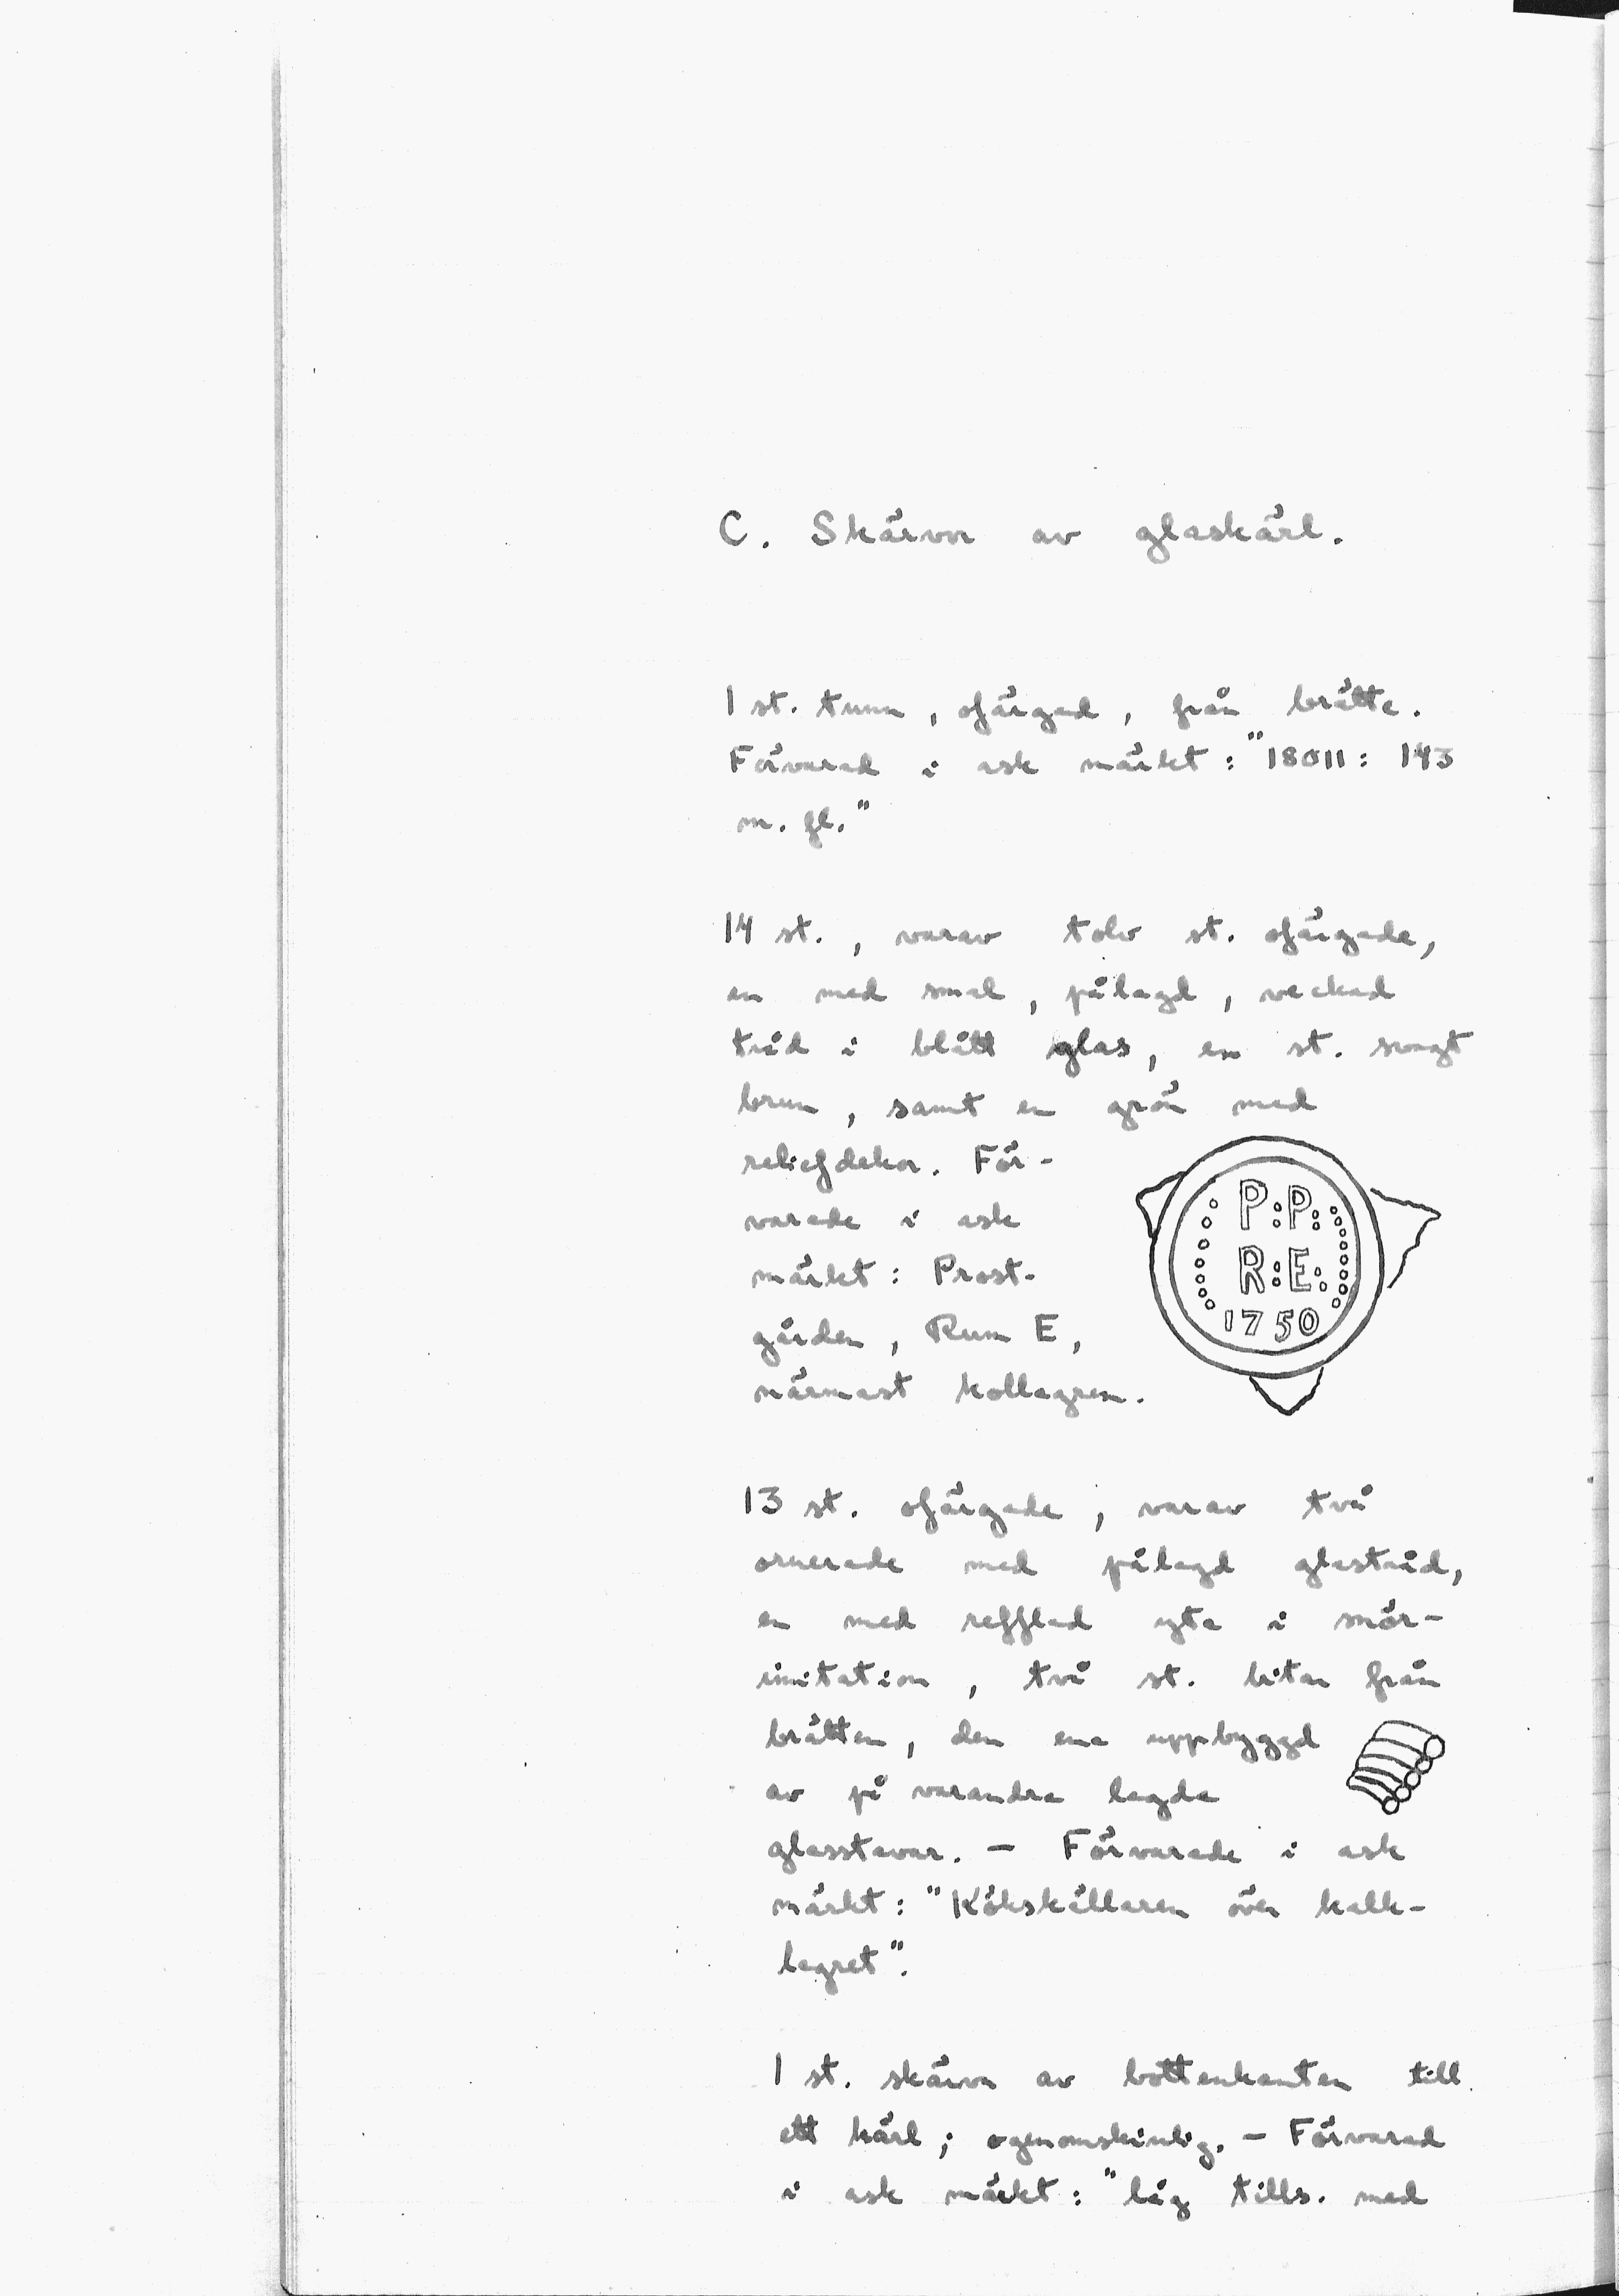 C. Skärvor av glaskärl.
1 st. tunn, ofärgad, från brätte.
Förvarad i ask märkt: "18011: 143
m. fl."
14 st., varav tolv st. ofärgade,
en med smal, pålagd, veckad
tråd i blått glas, en st. svagt
brun, samt en grön med
reliefdekor. För-
varade i ask
märkt: Prost-
gården, Rum E,
närmast kollagren.
P:P:
R:E:
1750
13 st. ofärgade, varav två
ornerade med pålagd glastråd,
en med refflad yta i snör-
imitation, två st. bitar från
brätten, den ena uppbyggd
av på varandra lagda
glasstavar. - Förvarade i ask
märkt: "Kökskällaren över kalk-
lagret".
1 st. skärva av bottenkanten till
ett kärl; ogenomskinlig. - Förvarad
i ask märkt: "låg tills. med